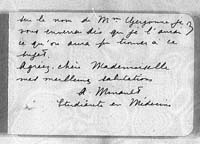 sur le nom de Mme Gergonne je
vous enverrai dès que je l'aurai
ce qu'on aura pu trouver à ce
sujet.
Agréez, chère Mademoiselle
mes meilleures salutations
A
Etudiante en Médecine